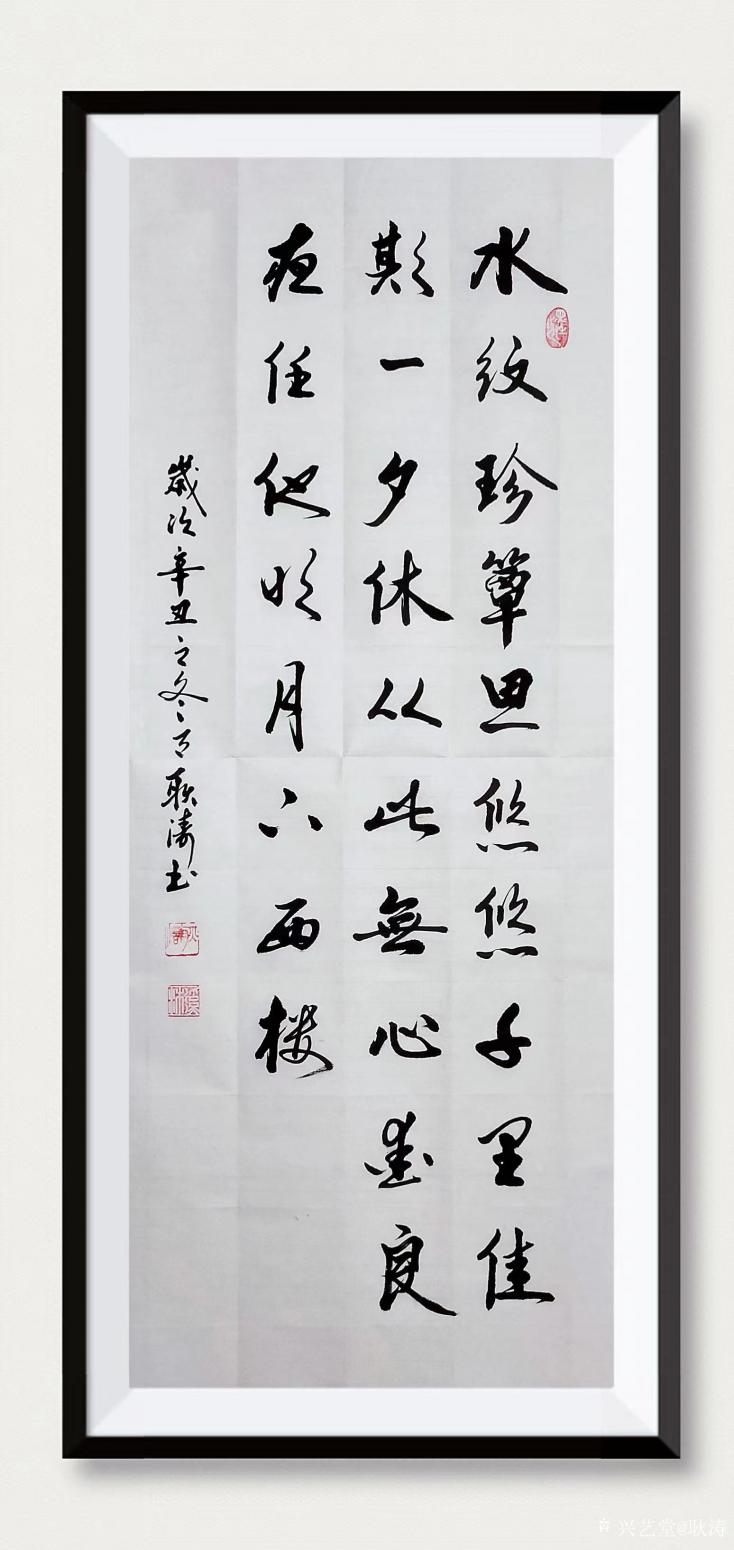 水纹珍簟思悠悠千里佳
期一夕休从此無心爱良
夜任他明月下西楼
歲次辛丑之冬耿涛书
兴艺堂@耿涛